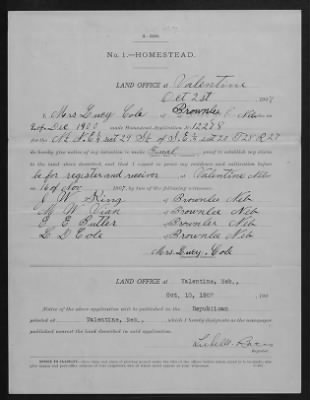 No. 1.—HOMESTEAD.
LAND OFFICE at Valentine
Oct 2st 1907
I, Mrs Lucy Cole of Brownlee Neb
Dec 1900 made Homestead Application No. 12278
for the
do hereby give notice of my intention to make Final proof to establish my claim
to the land above described, and that I expect to prove my residence and cultivation before
be for register and receiver at Valentine Neb
on 16 of Nov 1907, by two of the following witnesses:
J W King of Brownlee Neb
M W Vian of Brownlee Neb
E E Butler of Brownlee Neb
L D Cole of Brownlee Neb
Mrs Lucy Cole
LAND OFFICE at Valentine, Neb.,
Oct. 10, 1907 190
Notice of the above application will be published in the Republican
printed at Valentine, Neb., which I hereby designate as the newspaper
published nearest the land described in said application.
Register.